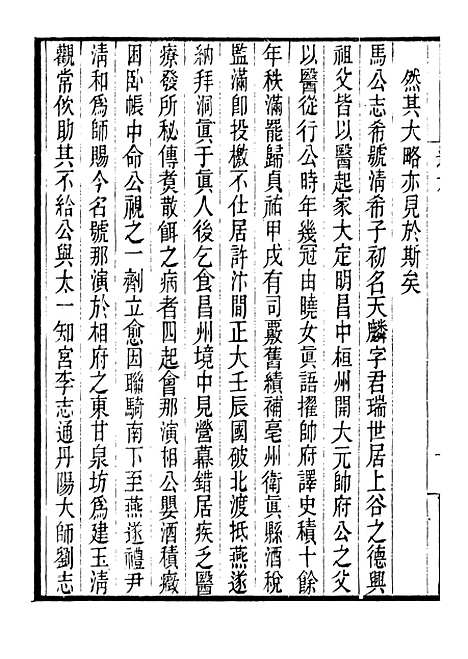 然其大略亦見於斯矣
馬公志希號淸希子初名天麟字君瑞世居上谷之德興
祖父皆以醫起家大定明昌中桓州開大元帥府公之父
以醫從行公時年幾冠由曉女眞語擢帥府譯史積十餘
年秩滿罷歸貞祐甲戌有司覈舊績補亳州衛眞縣酒稅
監滿卽投檄不仕居許汴間正大壬辰國破北渡抵燕遂
納拜洞眞于眞人後乞食昌州境中見營幕錯居疾乏醫
療發所秘傳煑散餌之病者四起會那演相公嬰酒積癥
因臥帳中命公視之一劑立愈因聯騎南下至燕遂禮尹
淸和爲師賜今名號那演於相府之東甘泉坊爲建玉淸
觀常佽助其不給公與太一知宮李志通丹陽大師劉志